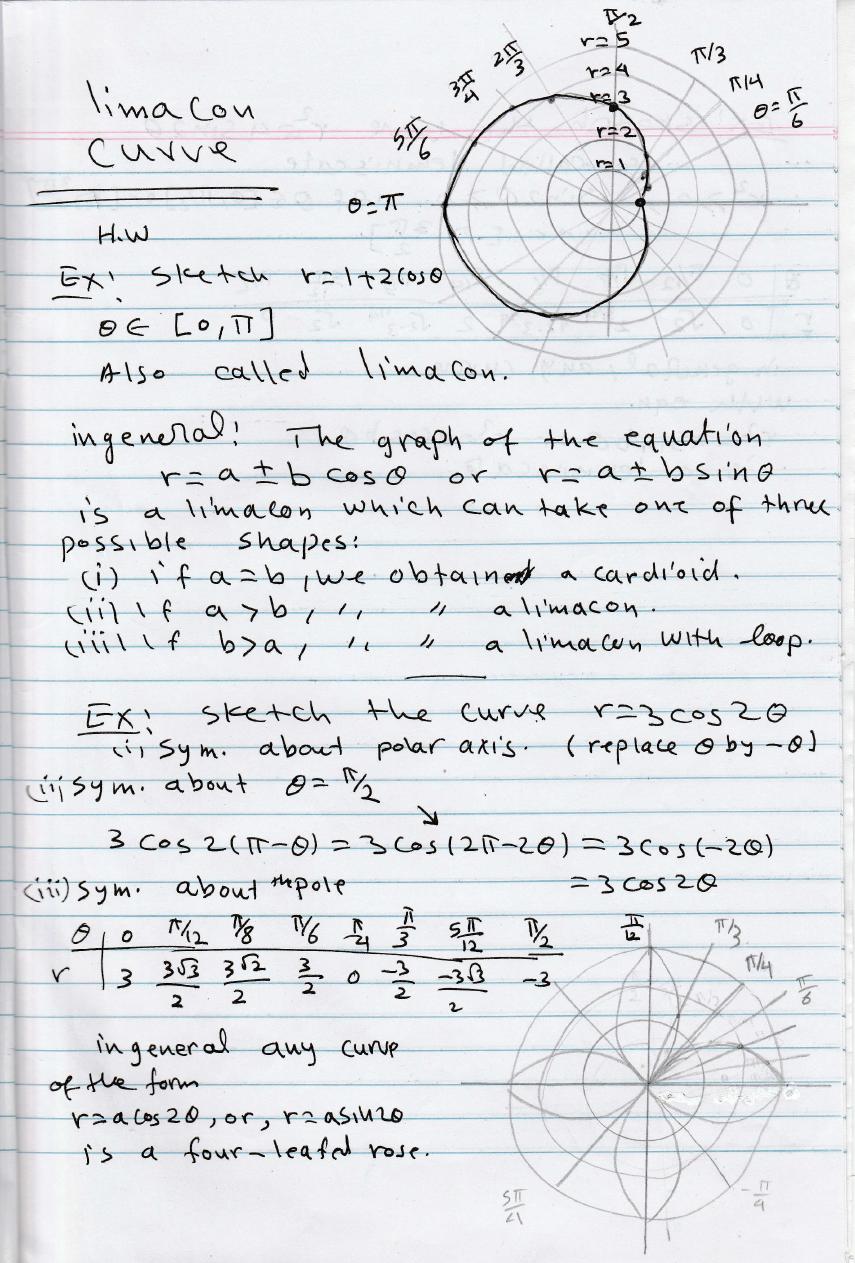 π/2
r=5
2π/3
r=4
π/3
3π/4
r=3
π/4
θ=π/6
limacon
curve
5π/6
r=2
r=1
θ=π
H.W
Ex: sketch r=1+2cosθ
θ∈ [0,π]
Also called limacon.
in general: The graph of the equation
r=a±b cosθ or r=a±b sinθ
is a limacon which can take one of three
possible shapes:
(i) if a=b, we obtained a cardioid.
(ii) If a>b, ,, " a limacon.
(iii) If b>a, ,, " a limacon with loop.
Ex: sketch the curve r=3cos2θ
(i) sym. about polar axis. (replace θ by -θ)
(ii) sym. about θ=π/2
3cos2(π-θ)=3cos(2π-2θ)=3cos(-2θ)
(iii) sym. about the pole =3cos2θ
θ 0 π/12 π/8 π/6 π/4 π/3 5π/12 π/2
r 3 3√3/2 3√2/2 3/2 0 -3/2 -3√3/2 -3
π/12
π/3
π/4
π/6
in general any curve
of the form
r=acos2θ, or, r=asin2θ
is a four-leafed rose.
5π/4
-π/4